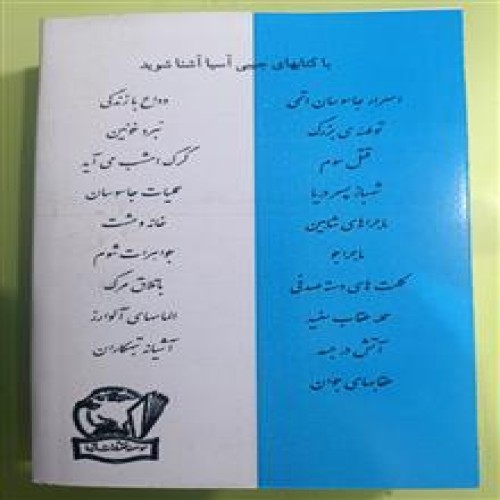 با کتابهای جیبی آسیا آشنا شوید
اسرار جاسوسان اتمی
توطئه‌ی بزرگ
قتل سوم
شهباز پسر دریا
ماجراهای شاهین
ماجراجو
کلت های دسته صدفی
حمله عقاب سفید
آتش در مه
عقابهای جوان
وداع با زندگی
نبرد خونین
گرگ امشب می آید
عملیات جاسوسان
خانه وحشت
جواهرات شوم
باتلاق مرگ
الماسهای آلوارز
آشیانه تبهکاران